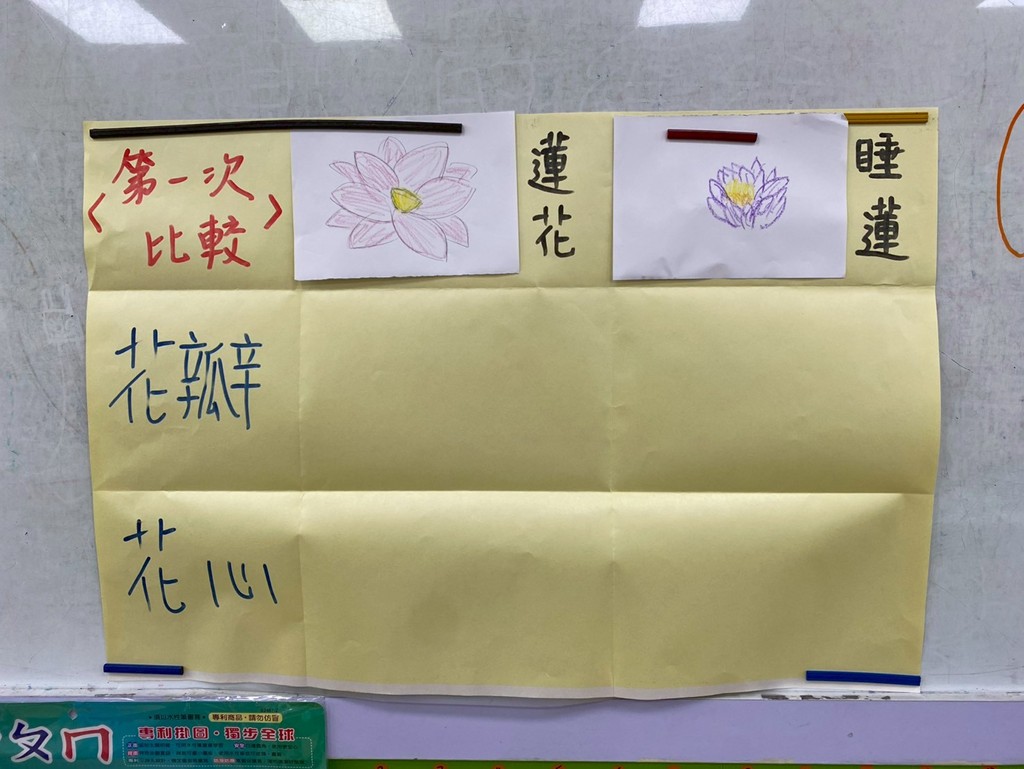 〈第一次
比較〉
蓮花
睡蓮
花瓣
花心
ㄆㄇ
專利商品·請勿仿冒
專利掛圖·獨步全球